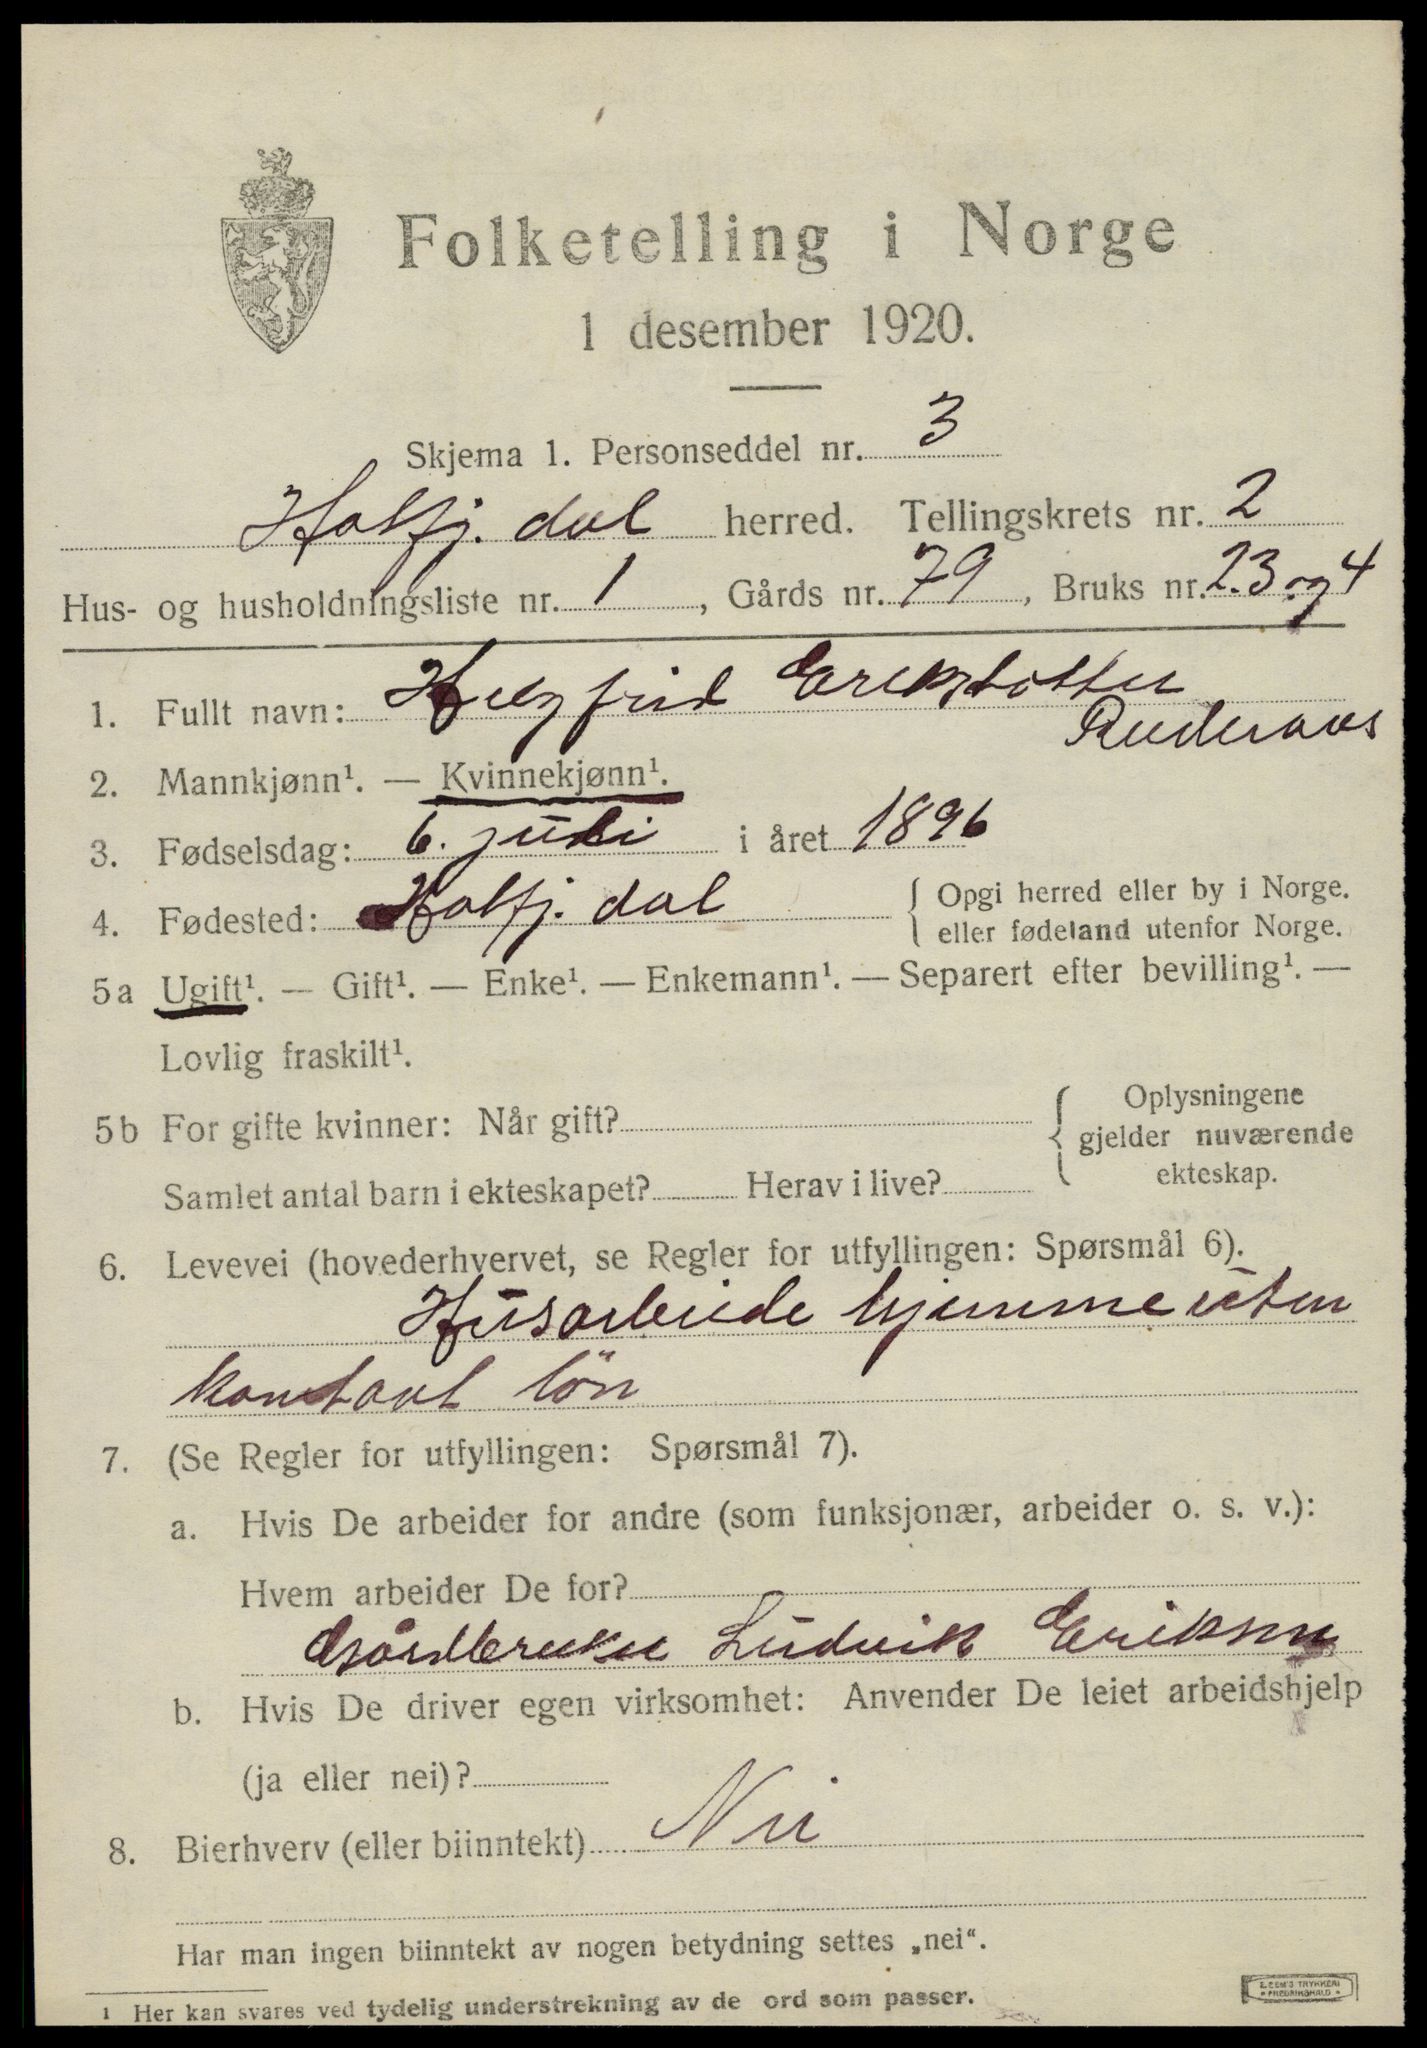 Folketelling i Norge
1 desember 1920.
Skjema 1. Personseddel nr. 3
Hatfj. dal herred. Tellingskrets nr. 2
Hus- og husholdningsliste nr. 1, Gårds nr. 79, Bruks nr. 2.3 og 4
1. Fullt navn: Erikdotter
2. Mannkjønn¹. — Kvinnekjønn¹.
3. Fødselsdag: 6. juli i året 1896
4. Fødested: Hatfj. dal { Opgi herred eller by i Norge.
eller fødeland utenfor Norge.
5a Ugift¹. — Gift¹. — Enke¹. — Enkemann¹. — Separert efter bevilling¹. —
Lovlig fraskilt¹.
5b For gifte kvinner: Når gift? { Oplysningene
gjelder nuværende
ekteskap.
Samlet antal barn i ekteskapet? Herav i live?
6. Levevei (hovederhvervet, se Regler for utfyllingen: Spørsmål 6).
Husarbeide hjemme uten
kontant lön
7. (Se Regler for utfyllingen: Spørsmål 7).
a. Hvis De arbeider for andre (som funksjonær, arbeider o. s. v.):
Hvem arbeider De for?
Gårdbruker Ludvik Eriksen
b. Hvis De driver egen virksomhet: Anvender De leiet arbeidshjelp
(ja eller nei)?
8. Bierhverv (eller biinntekt) Nei
Har man ingen biinntekt av nogen betydning settes „nei“.
1 Her kan svares ved tydelig understrekning av de ord som passer.
E. SEM'S TRYKKERI
• FREDRIKSHALD •